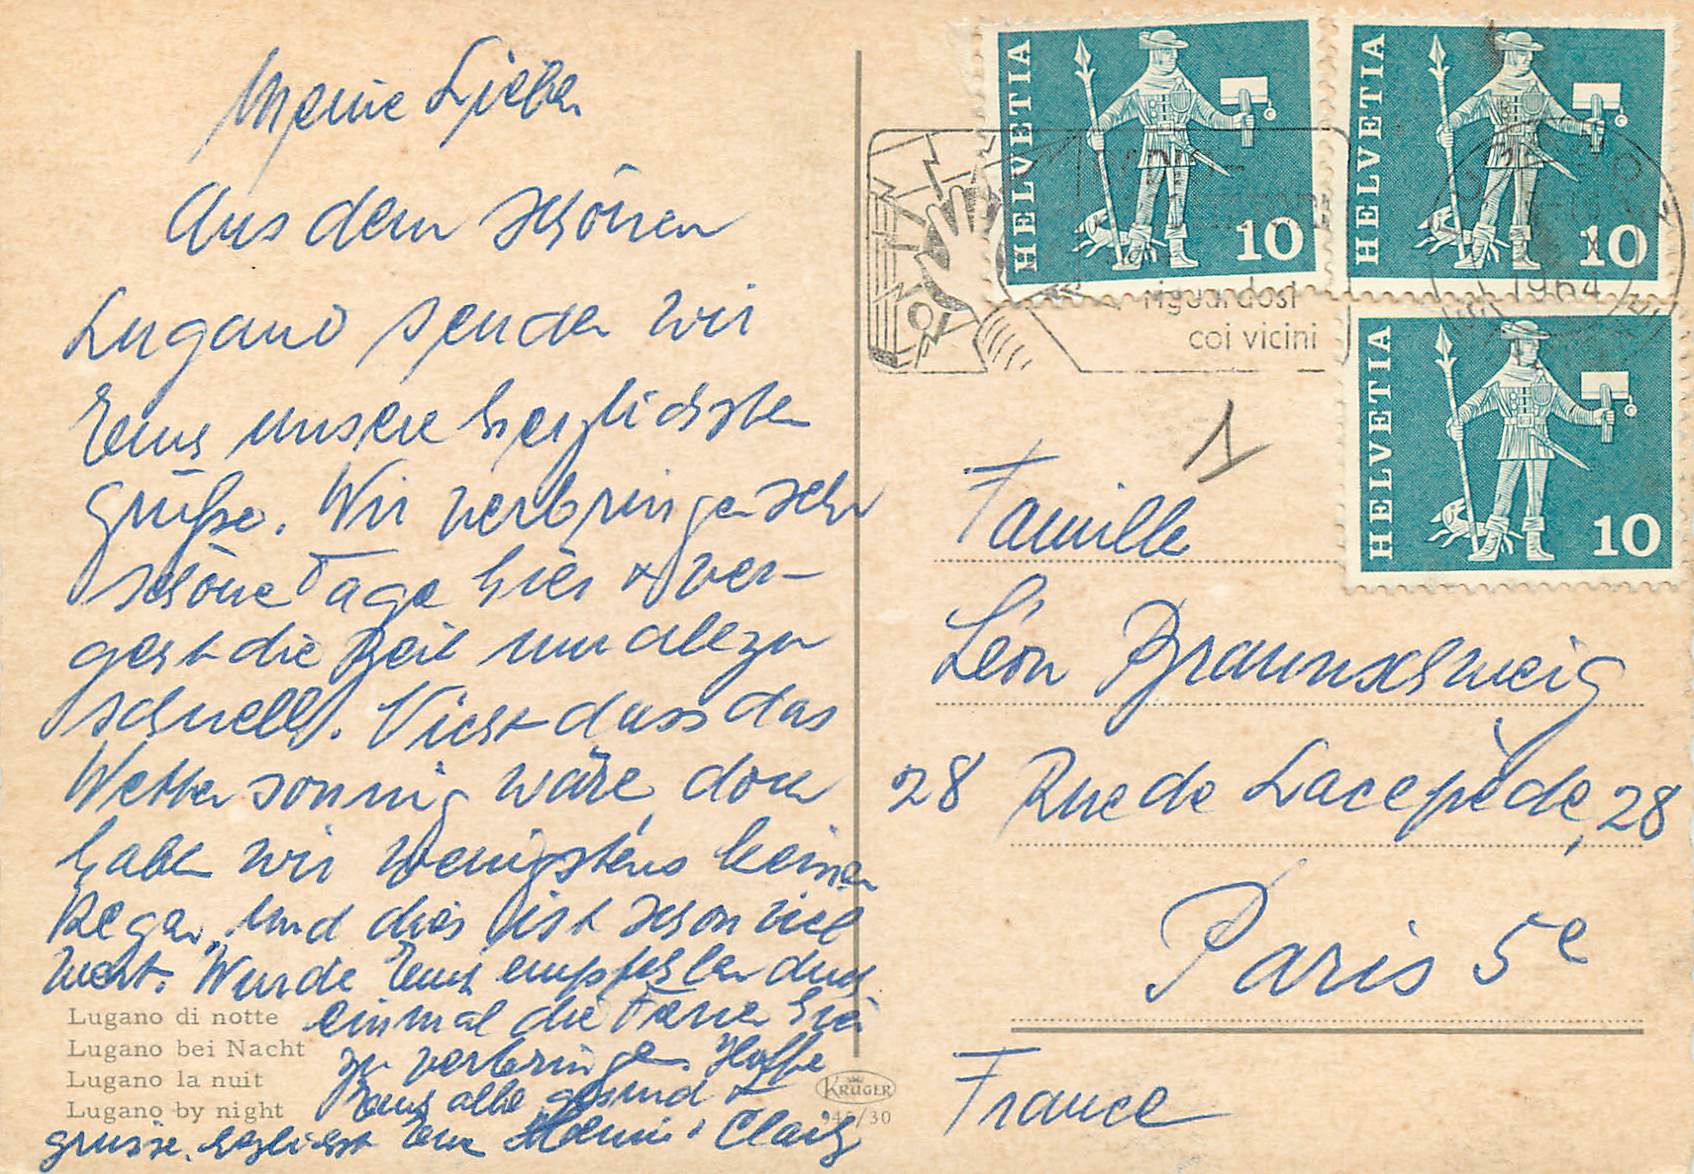 Meine Lieben
Aus dem schönen
Lugano senden wir
Euch unsere herzlichsten
Grüße. Wir verbringen sehr
schöne Tage hier & ver-
geht die Zeit nur allzu
schnell. Nicht dass das
Wetter sonnig wäre, doch
haben wir wenigstens keinen
Regen. Und dies ist schon viel
wert. Würde Euch empfehlen auch
einmal die Ferien hier
zu verbringen. Hoffe
Euch alle gesund &
grüsse herzlichst Eure
Lugano di notte
Lugano bei Nacht
Lugano la nuit
Lugano by night
KRÜGER
945/30
HELVETIA 10
HELVETIA 10
HELVETIA 10
riguardosi
coi vicini
1964
1
Famille
Léon Braunschweig
28 Rue de Lacepède, 28
Paris 5e
France